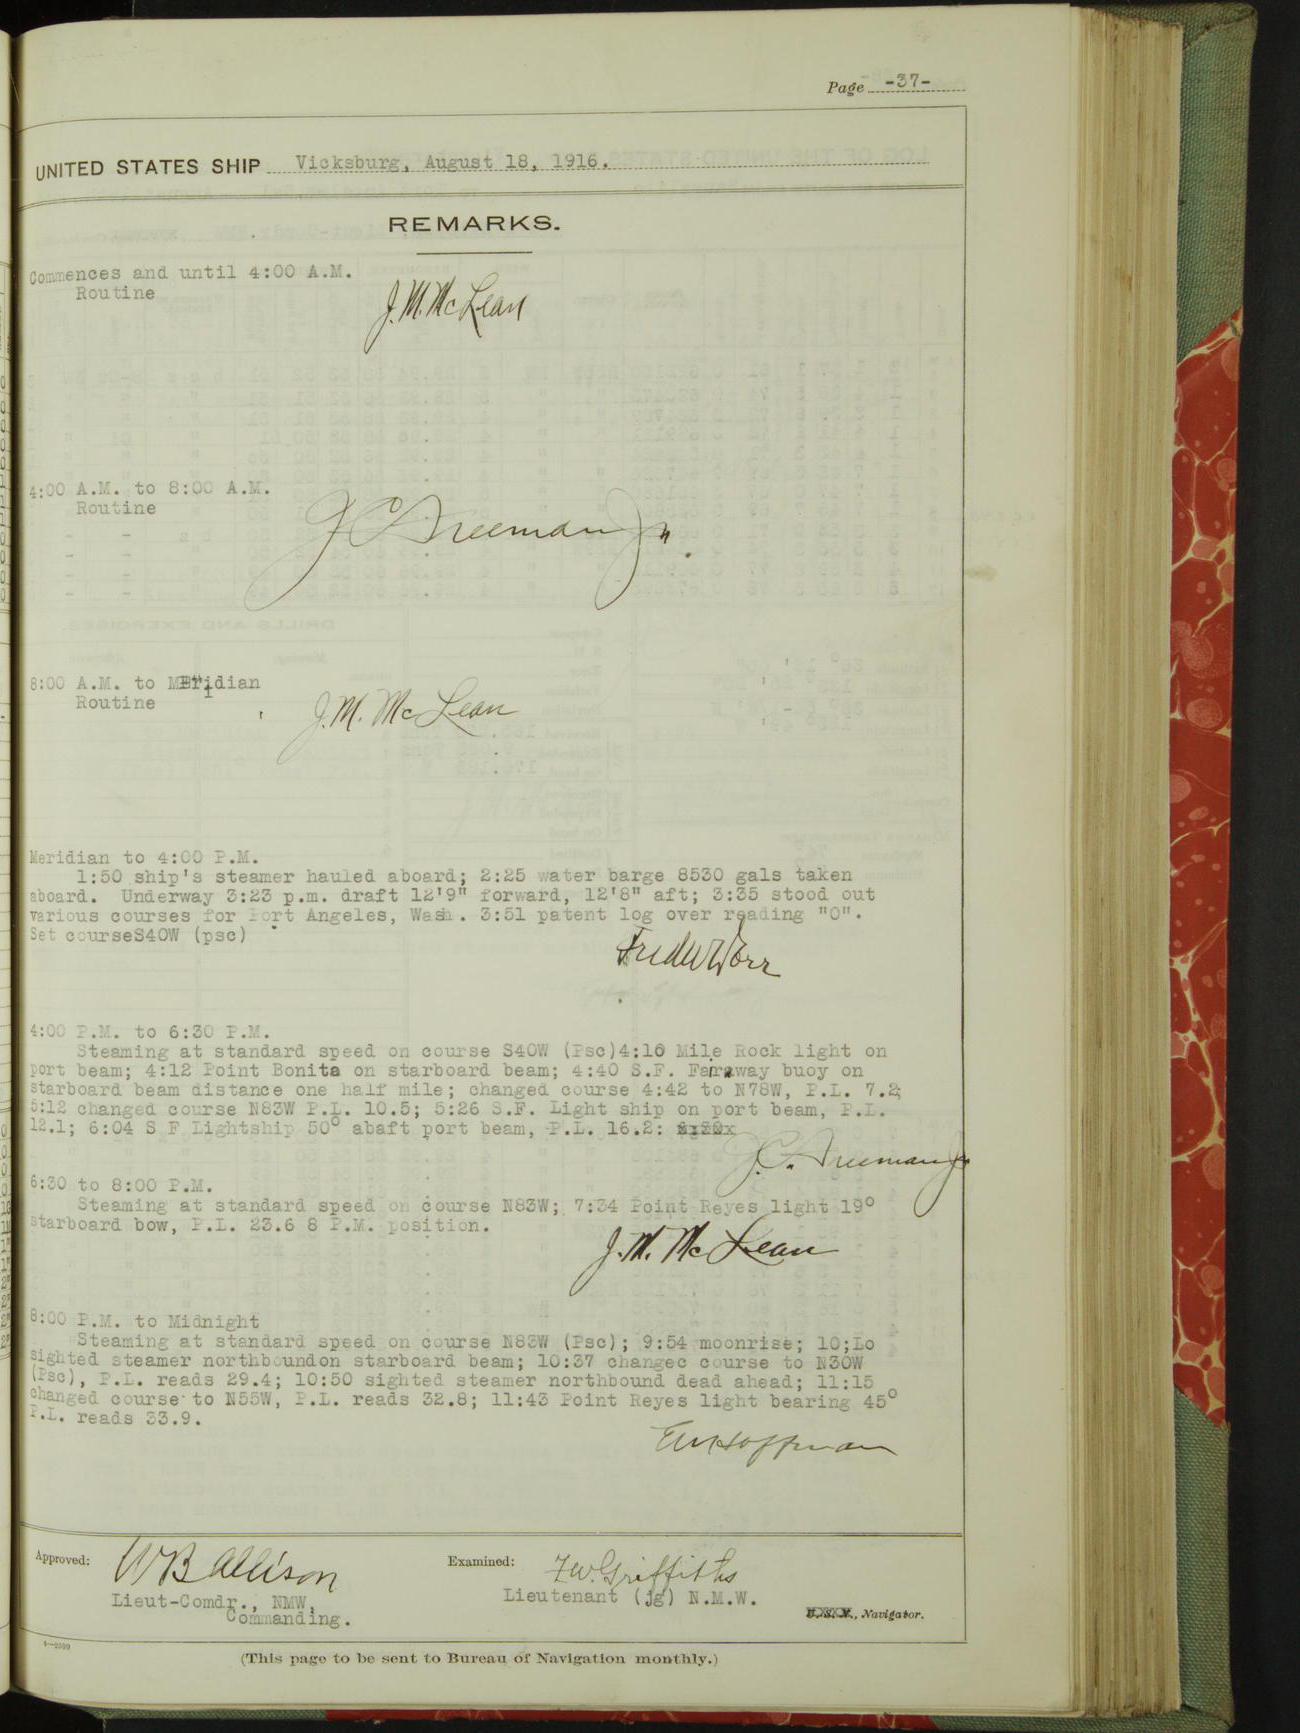 Page -37-
UNITED STATES SHIP Vicksburg, August 18, 1916.
REMARKS.
Commences and until 4:00 A.M.
Routine
J. M. McLean
4:00 A.M. to 8:00 A.M.
Routine
J C Freeman Jr.
8:00 A.M. to Meridian
Routine
J. M. McLean
Meridian to 4:00 P.M.
1:50 ship's steamer hauled aboard; 2:25 water barge 8530 gals taken
aboard. Underway 3:23 p.m. draft 12'9" forward, 12'8" aft; 3:35 stood out
various courses for Port Angeles, Wash. 3:51 patent log over reading "0".
Set courseS40W (psc)
4:00 P.M. to 6:30 P.M.
Steaming at standard speed on course S40W (Psc)4:10 Mile Rock light on
port beam; 4:12 Point Bonita on starboard beam; 4:40 S.F. Farraway buoy on
starboard beam distance one half mile; changed course 4:42 to N78W, P.L. 7.2;
5:12 changed course N83W P.L. 10.5; 5:26 S.F. Light ship on port beam, P.L.
12.1; 6:04 S F Lightship 50° abaft port beam, P.L. 16.2:
J. C. Freeman Jr
6:30 to 8:00 P.M.
Steaming at standard speed on course N83W; 7:34 Point Reyes light 19°
starboard bow, P.L. 23.6 8 P.M. position.
J. M. McLean
8:00 P.M. to Midnight
Steaming at standard speed on course N83W (Psc); 9:54 moonrise; 10;Lo
sighted steamer northboundon starboard beam; 10:37 changec course to N30W
(Psc), P.L. reads 29.4; 10:50 sighted steamer northbound dead ahead; 11:15
changed course to N55W, P.L. reads 32.8; 11:43 Point Reyes light bearing 45°
P.L. reads 33.9.
EMHoffman
Approved: WB Allison
Examined: F.W. Griffiths
Lieut-Comdr., NMW,
Commanding.
Lieutenant (jg) N.M.W.
U.S.N., Navigator.
(This page to be sent to Bureau of Navigation monthly.)